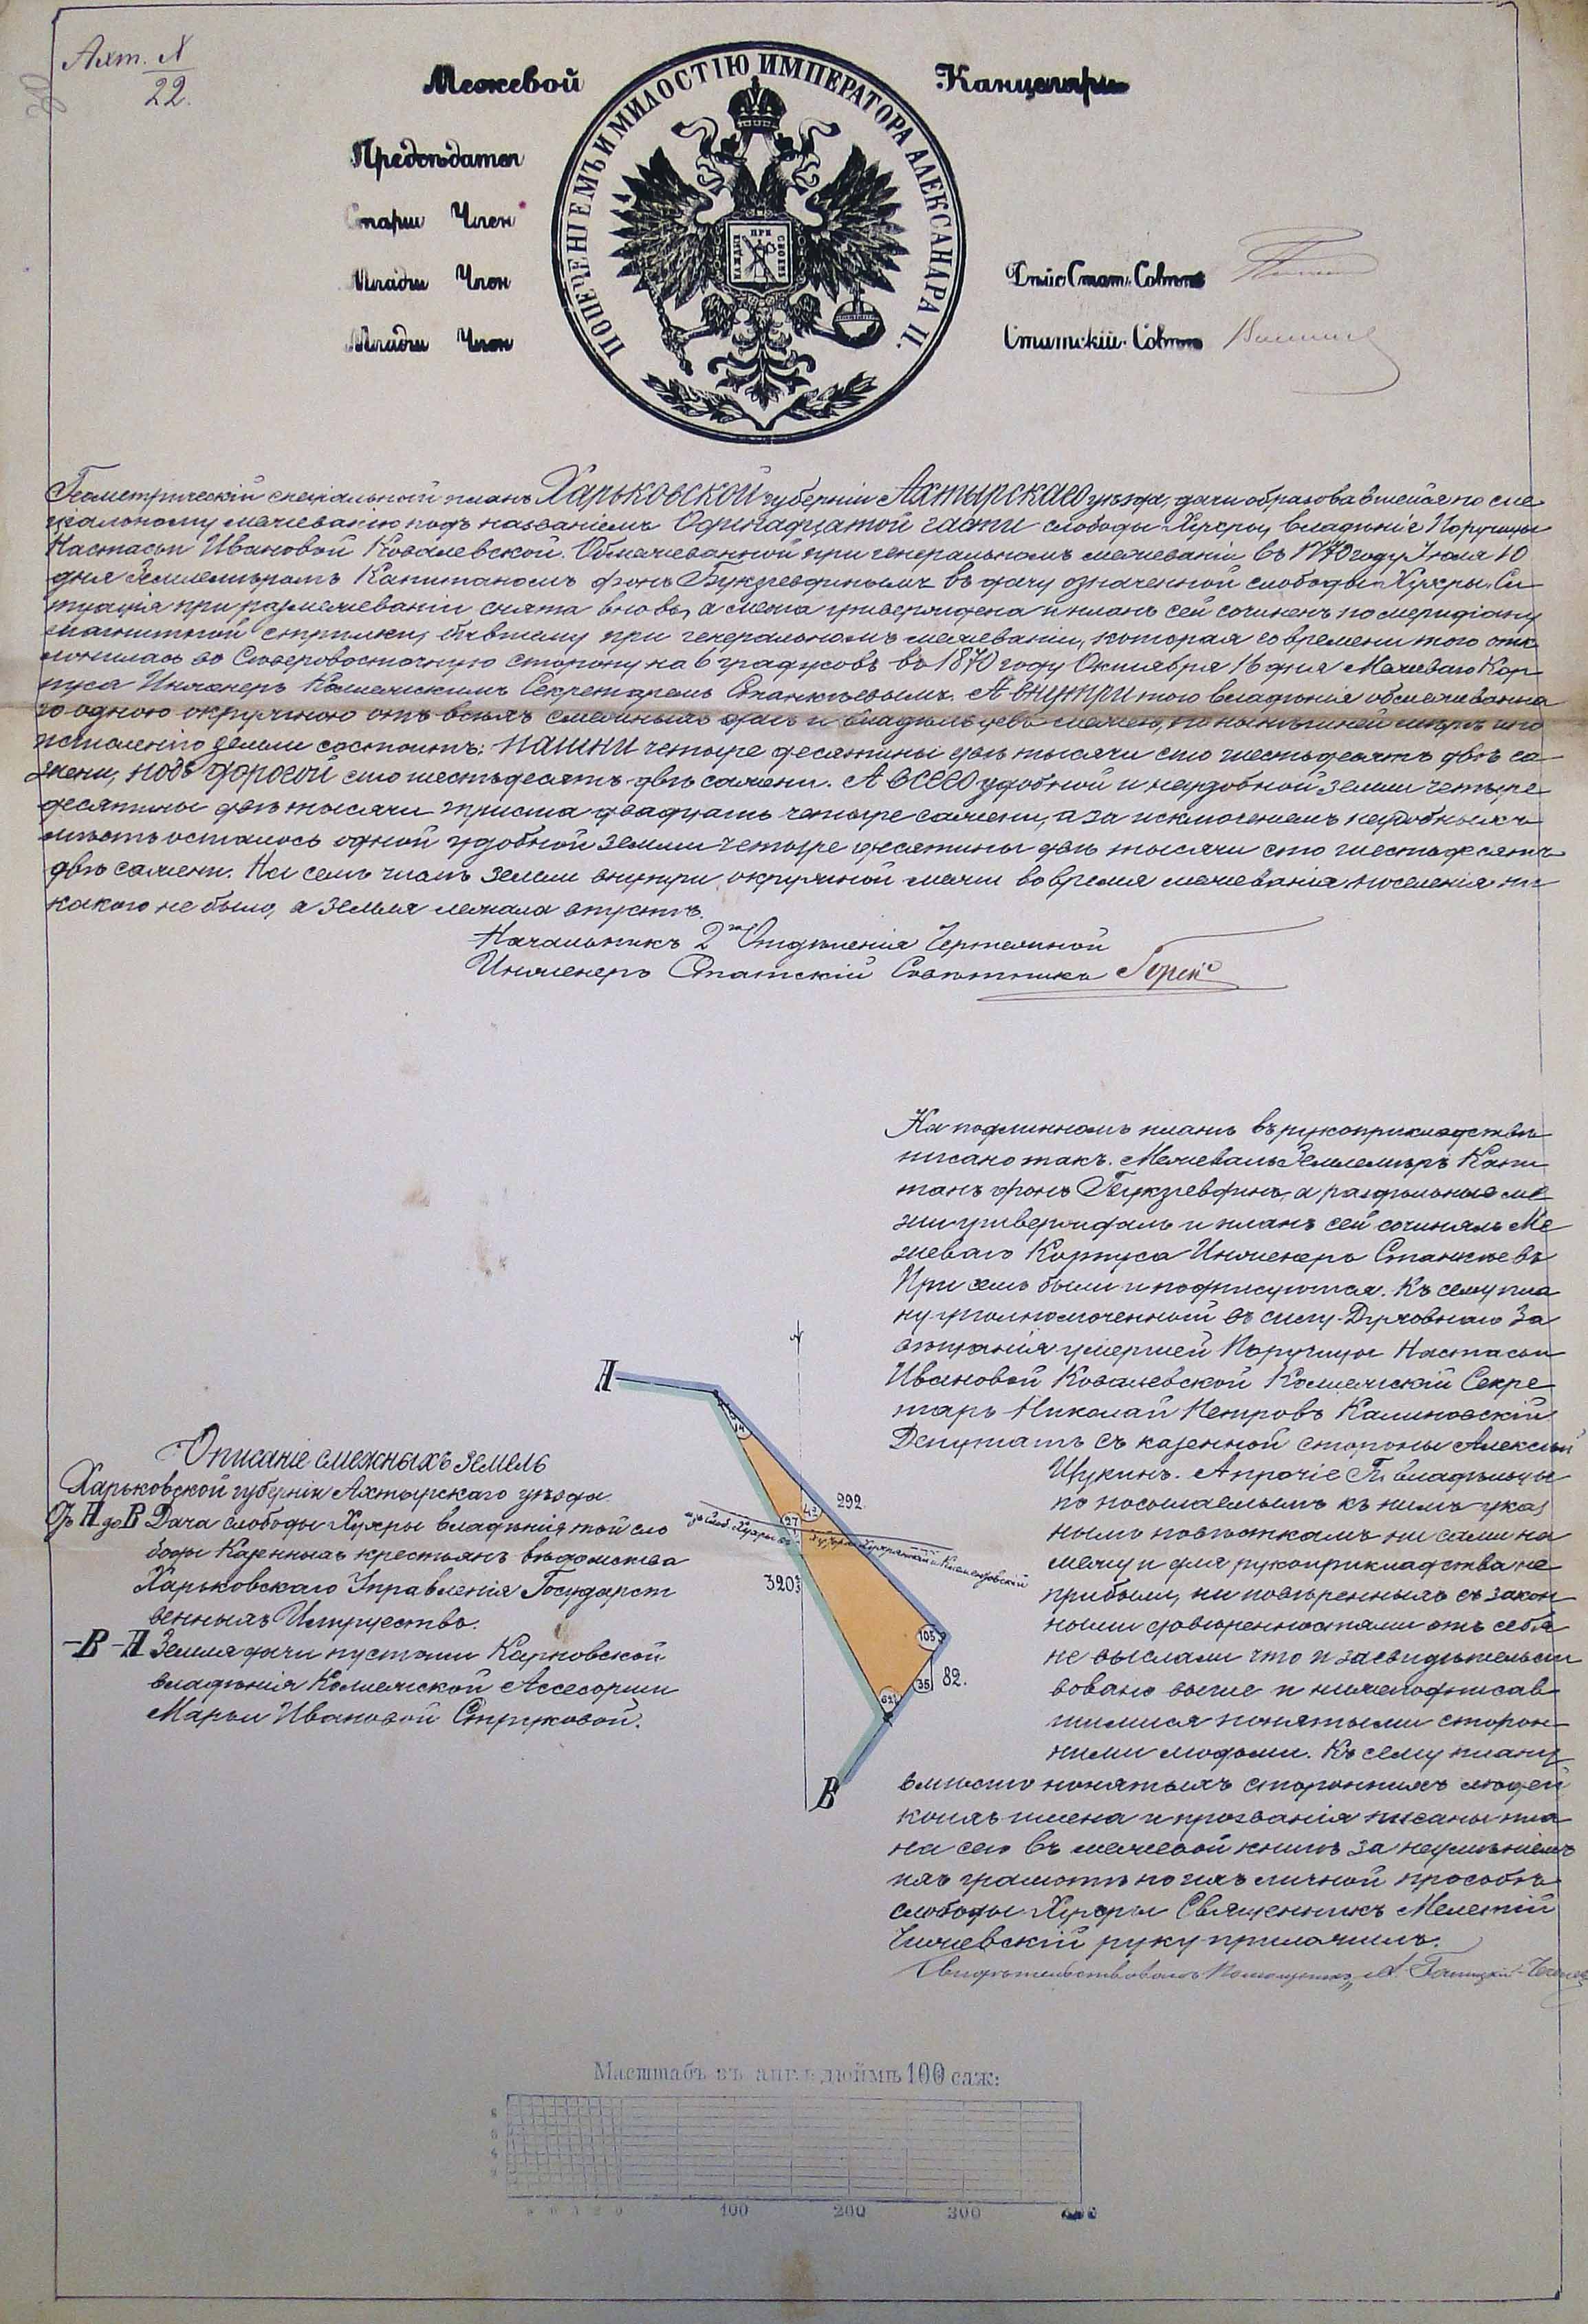 Ахт. N
22.
Межевой Канцеляри
ПОПЕЧЕНІЕМЪ И МИЛОСТІЮ ИМПЕРАТОРА АЛЕКСАНДРА II.
Предсѣдател
Старш Член
Младш Член Дѣйс. Стат. Совѣтн
Младш Член Статскій Совѣтн
Геометрическій спеціальной планъ Харьковской губерніи Ахтырскаго уѣзда, дачи образовавшейся по спе
ціальному межеванію подъ названіемъ Одинадцатой части слободы Хухры, владѣніе Поручицы
Настасьи Ивановой Ковалевской. Обмежеванной при генеральномъ межеваніи въ 1770 году Іюля 10
дня Землемѣромъ Капитаномъ фонъ Букзгевдиномъ въ дачу означенной слободы Хухры. Си
туація при размежеваніи снята вновь, а межа утверждена и планъ сей сочиненъ по меридіану
магнитной стрѣлки, бывшему при генеральномъ межеваніи, которая со времени того отк
лонилась во Сѣверовосточную сторону на 6 градусовъ въ 1870 году Октября 16 дня Межеваго Кор
пуса Инженеръ Коллежскимъ Секретаремъ Станкѣевымъ. А внутри того владѣнія обмежеванна
го одною окружною отъ всѣхъ смежныхъ дачъ и владѣльцевъ межею, по нынѣшней мѣрѣ и по
исчисленію земли состоитъ: пашни четыре десятины двѣ тысячи сто шестьдесятъ двѣ са
жени, подъ дорогой сто шестьдесятъ двѣ сажени. А всего удобной и неудобной земли четыре
десятины двѣ тысячи триста двадцать четыре сажени, а за исключеніемъ неудобныхъ
мѣстъ осталось одной удобной земли четыре десятины двѣ тысячи сто шестьдесятъ
двѣ сажени. На семъ числѣ земли внутри окружной межи во время межеванія поселенія ни
какого не было, а земля лежала впустѣ.
Начальникъ 2го Отдѣленія Чертежной
Инженеръ Статскій Совѣтникъ
На подлинномъ планѣ въ рукоприкладствѣ
писано такъ. Межевалъ Землемѣръ Капи
танъ фонъ Букзгевдинъ, а раздѣльные ме
жи утверждалъ и планъ сей сочинялъ Ме
жеваго Корпуса Инженеръ Станкѣевъ
При семъ были и подписуются. Къ сему пла
ну уполномоченный въ силу Духовнаго За
вѣщанія умершей Поручицы Настасьи
Ивановой Ковалевской Коллежскій Секре
тарь Николай Петровъ Калиновскій
Депутатъ съ казенной стороны Алексѣй
Щукинъ. А прочіе Гг. владѣльцы
по посылаемымъ къ нимъ указ
нымъ повѣсткамъ ни сами на
межу и для рукоприкладства не
прибыли, ни повѣренныхъ съ закон
ными довѣренностями отъ себя
не выслали что и засвидѣтельст
вовано выше и нижеподписав
шимися понятыми сторон
ними людьми. Къ сему плану
вмѣсто понятыхъ стороннихъ людей
коихъ имена и прозванія писаны пла
на сего въ межевой книгѣ за неумѣніемъ
ихъ грамотѣ по ихъ личной просьбѣ
слободы Хухры Священникъ Мелетій
Чижевскій руку приложилъ.
Свидѣтельствовалъ Помощникъ
Описаніе смежныхъ земель
Харьковской губерніи Ахтырскаго уѣзда.
Отъ А до В Дача слободы Хухры владѣнія той сло
боды Казенныхъ крестьянъ вѣдомства
Харьковскаго Управленія Государст
венныхъ Имуществъ.
–В–А Земля дачи пустоши Карповской
владѣнія Коллежской Ассесорши
Марьи Ивановой Струковой.
А
14
292.
42
27
изъ Слоб. Хухры въ хутора Хухрянскій и Климентовскій
320
105
82.
35
62
В
Масштабъ въ англ. дюймѣ 100 саж:
100 200 300 400